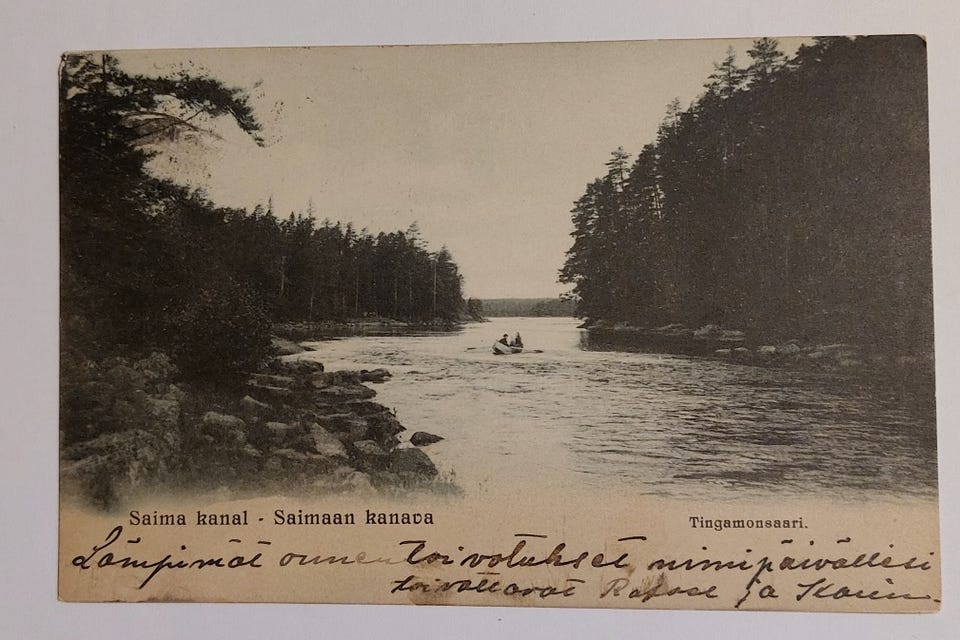 Saima kanal - Saimaan kanava
Tingamonsaari.
Lämpimät onnentoivotukset nimipäivällesi
toivottavat ja